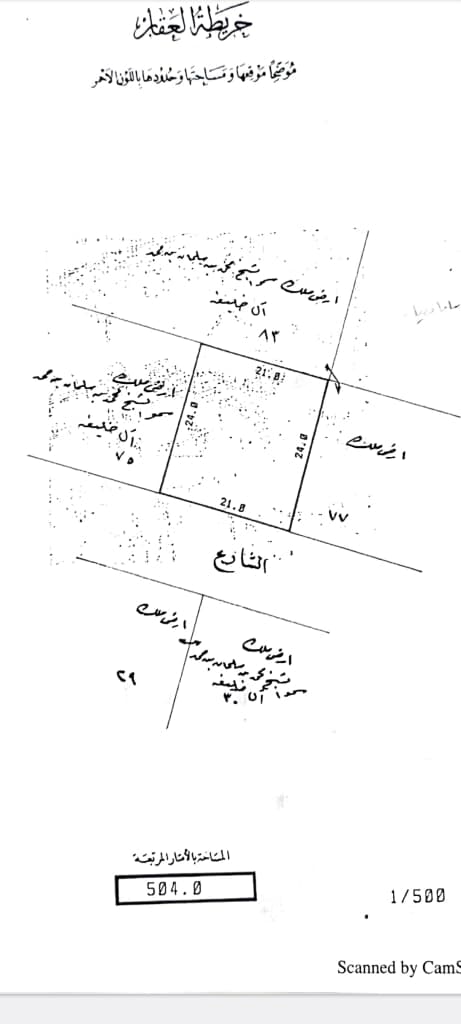 خريطة العقار
موضحا موقعها ومساحتها وحدودها باللون الأحمر
ارض ملك سمو الشيخ محمد بن سلمان بن حمد
آل خليفه
٨٣
21.0
ارض ملك
سمو الشيخ محمد بن سلمان بن حمد
آل خليفه
٧٥
24.0
24.0
ارض ملك
٧٧
21.0
الشارع
ارض ملك
٢٩
ارض ملك
سمو الشيخ محمد بن سلمان بن حمد
آل خليفه
٣٠
المساحة بالأمتار المربعة
504.0
1/500
Scanned by CamS